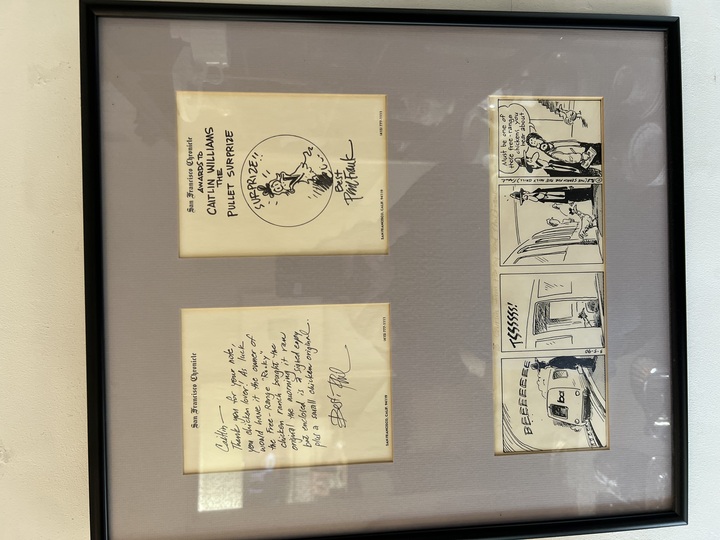 San Francisco Chronicle
Caitlin—
Thank you for your note,
you chicken lover! As luck
would have it the owner of
the Free-Range "Rocky"
chicken ranch bought the
original the morning it ran
but enclosed is a signed copy
plus a small chicken original.
Best, Phil
San Francisco Chronicle
AWARDS TO
CAITLIN WILLIAMS
THE
PULLET SURPRIZE
SURPRIZE!!
Best
Phil Frank
BEEEEEEE
TSSSSSS!
Must be one of
those free-range
chickens you
hear about